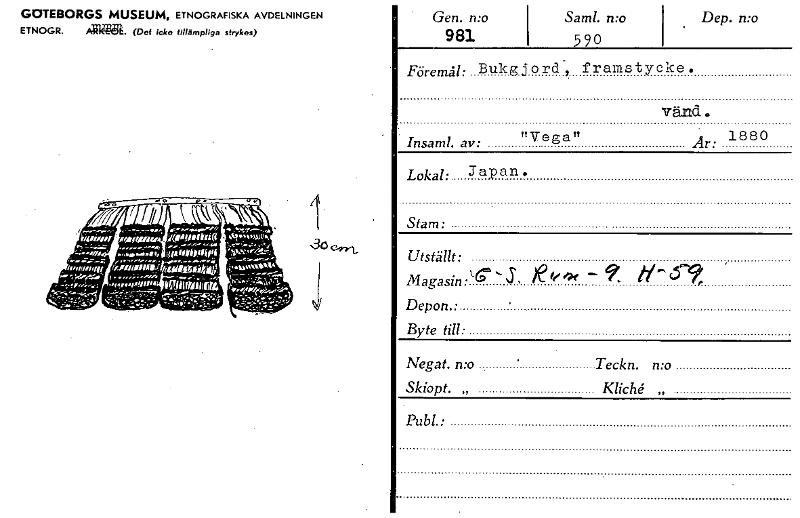 GÖTEBORGS MUSEUM, ETNOGRAFISKA AVDELNINGEN
ETNOGR. ARKEOL. (Det icke tillämpliga strykes)
30cm
Gen. n:o Saml. n:o Dep. n:o
981 590
Föremål: Bukgjord, framstycke.
vänd.
Insaml. av: "Vega" År: 1880
Lokal: Japan.
Stam:
Utställt:
Magasin: G-S. Rum-9. H-59.
Depon.:
Byte till:
Negat. n:o Teckn. n:o
Skiopt. „ Kliché „
Publ.: